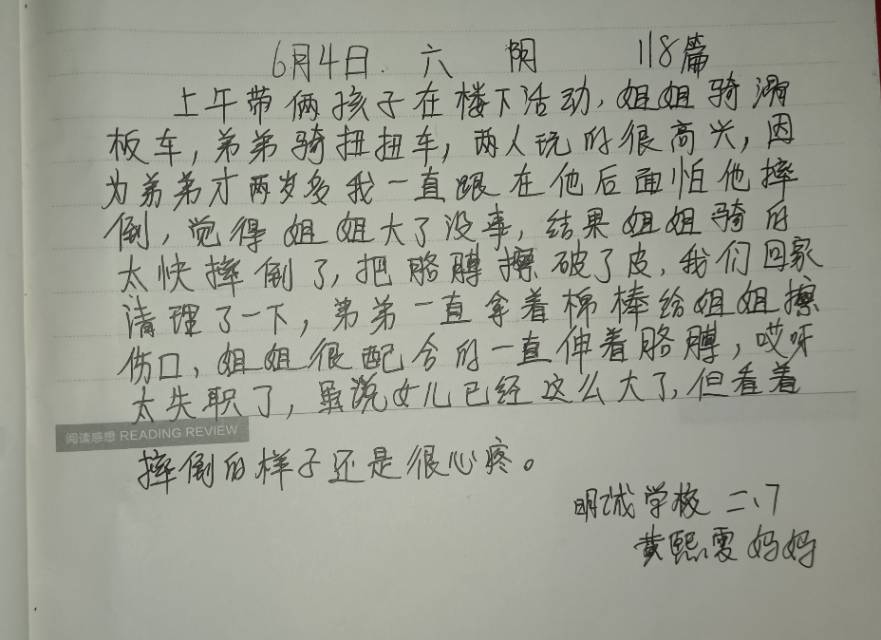 6月4日. 六 阴 118篇
上午带俩孩子在楼下活动,姐姐骑滑
板车,弟弟骑扭扭车,两人玩的很高兴,因
为弟弟才两岁多我一直跟在他后面怕他摔
倒,觉得姐姐大了没事,结果姐姐骑的
太快摔倒了,把胳膊擦破了皮,我们回家
清理了一下,弟弟一直拿着棉棒给姐姐擦
伤口,姐姐很配合的一直伸着胳膊,哎呀
太失职了,虽说女儿已经这么大了,但看着
阅读感想 READING REVIEW
摔倒的样子还是很心疼。
明诚学校 二、7
黄熙雯妈妈